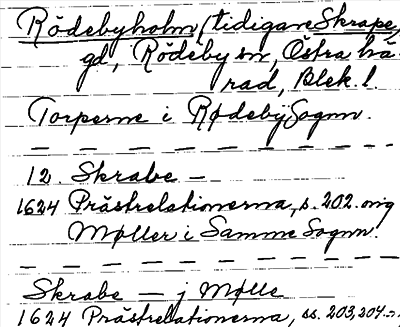 Rödebyholm (tidigare Skrape,
gd, Rödeby sn, Östra hä-
rad, Blek. l.
Torperne i Rødeby Sogn.
12. Skrabe —
1624 Prästrelationerna, s. 202. orig
Møller i Samme Sogn.
Skrabe — j Mølle
1624 Prästrelationerna, ss. 203, 204